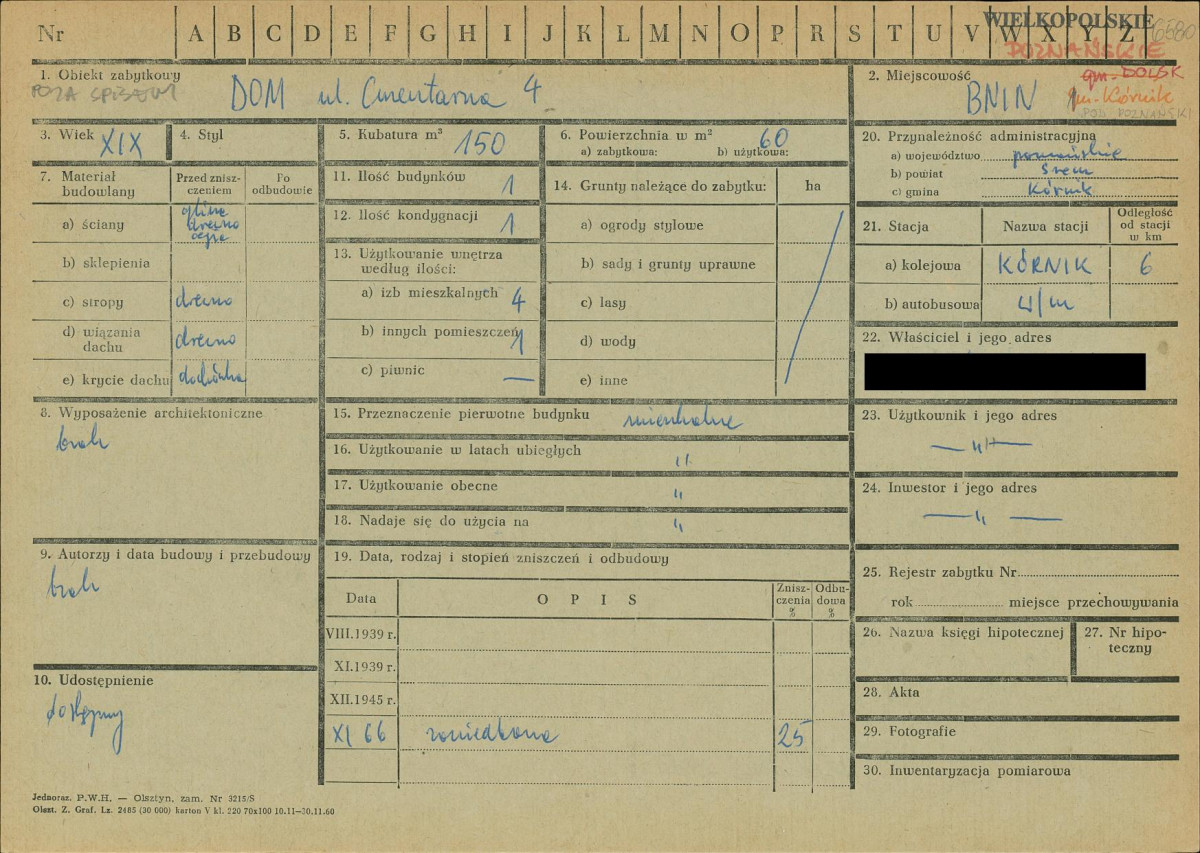 Nr A B C D E F G H I J K L M N O P R S T U V W X Y Z
WIELKOPOLSKIE
6580
POZNAŃSKIE
1. Obiekt zabytkowy
POZA SPISEM
DOM ul. Cmentarna 4
2. Miejscowość
BNIN
gm. DOLSK
gm. Kórnik
POD POZNAŃSKI
3. Wiek XIX
4. Styl
5. Kubatura m³ 150
6. Powierzchnia w m² 60
a) zabytkowa: b) użytkowa:
7. Materiał budowlany
Przed zniszczeniem
Po odbudowie
a) ściany glina drewno cegła
b) sklepienia
c) stropy drewno
d) wiązania dachu drewno
e) krycie dachu dachówka
8. Wyposażenie architektoniczne
brak
9. Autorzy i data budowy i przebudowy
brak
10. Udostępnienie
dostępny
11. Ilość budynków 1
12. Ilość kondygnacji 1
13. Użytkowanie wnętrza według ilości:
a) izb mieszkalnych 4
b) innych pomieszczeń 1
c) piwnic —
14. Grunty należące do zabytku: ha
a) ogrody stylowe
b) sady i grunty uprawne
c) lasy
d) wody
e) inne
15. Przeznaczenie pierwotne budynku mieszkalne
16. Użytkowanie w latach ubiegłych "
17. Użytkowanie obecne "
18. Nadaje się do użycia na "
19. Data, rodzaj i stopień zniszczeń i odbudowy
Data
OPIS
Zniszczenia %
Odbudowa %
VIII.1939 r.
XI.1939 r.
XII.1945 r.
XI 66 zaniedbana 25
20. Przynależność administracyjna
a) województwo poznańskie
b) powiat Śrem
c) gmina Kórnik
21. Stacja
Nazwa stacji
Odległość od stacji w km
a) kolejowa KÓRNIK 6
b) autobusowa w/m
22. Właściciel i jego adres
23. Użytkownik i jego adres
— " —
24. Inwestor i jego adres
— " —
25. Rejestr zabytku Nr
rok miejsce przechowywania
26. Nazwa księgi hipotecznej
27. Nr hipoteczny
28. Akta
29. Fotografie
30. Inwentaryzacja pomiarowa
Jednoraz. P.W.H. — Olsztyn, zam. Nr 3215/S
Olszt. Z. Graf. Lz. 2485 (30 000) karton V kl. 220 70x100 10.11—30.11.60